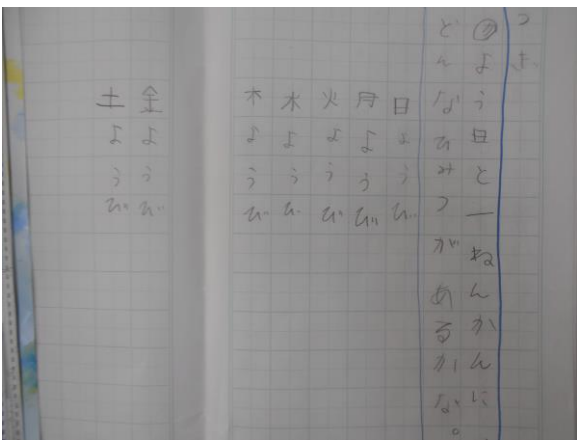 かよう日と一ねんかんに
どんなひみつがあるかな。
日ようび
月ようび
火ようび
水ようび
木ようび
金ようび
土ようび